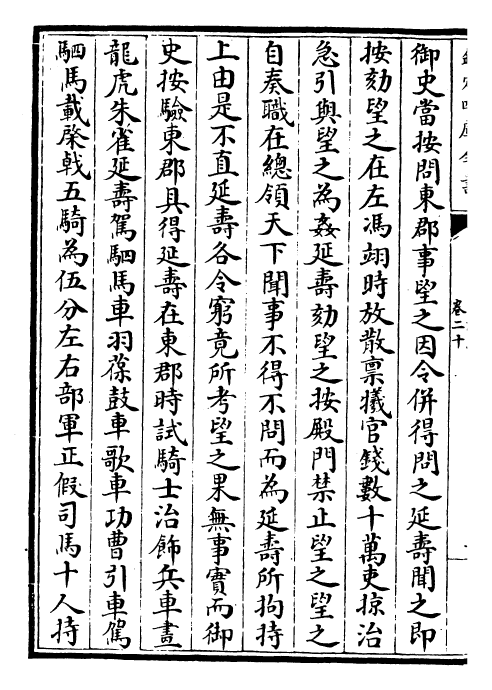 御史當按問東郡事望之因令併得問之延壽聞之即
按劾望之在左馮翊時放散禀犧官錢數十萬吏掠治
急引與望之為姦延壽劾望之按殿門禁止望之望之
自奏職在總領天下聞事不得不問而為延壽所拘持
上由是不直延壽各令窮竟所考望之果無事實而御
史按驗東郡具得延壽在東郡時試騎士治飾兵車畫
龍虎朱雀延壽駕駟馬車羽葆鼓車歌車功曹引車駕
駟馬載棨戟五騎為伍分左右部軍正假司馬十人持
卷二十